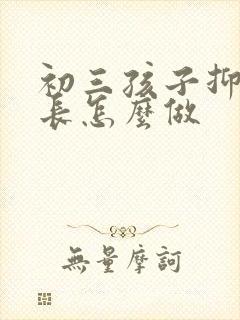 初三孩子抑
長怎麼做
無量摩訶